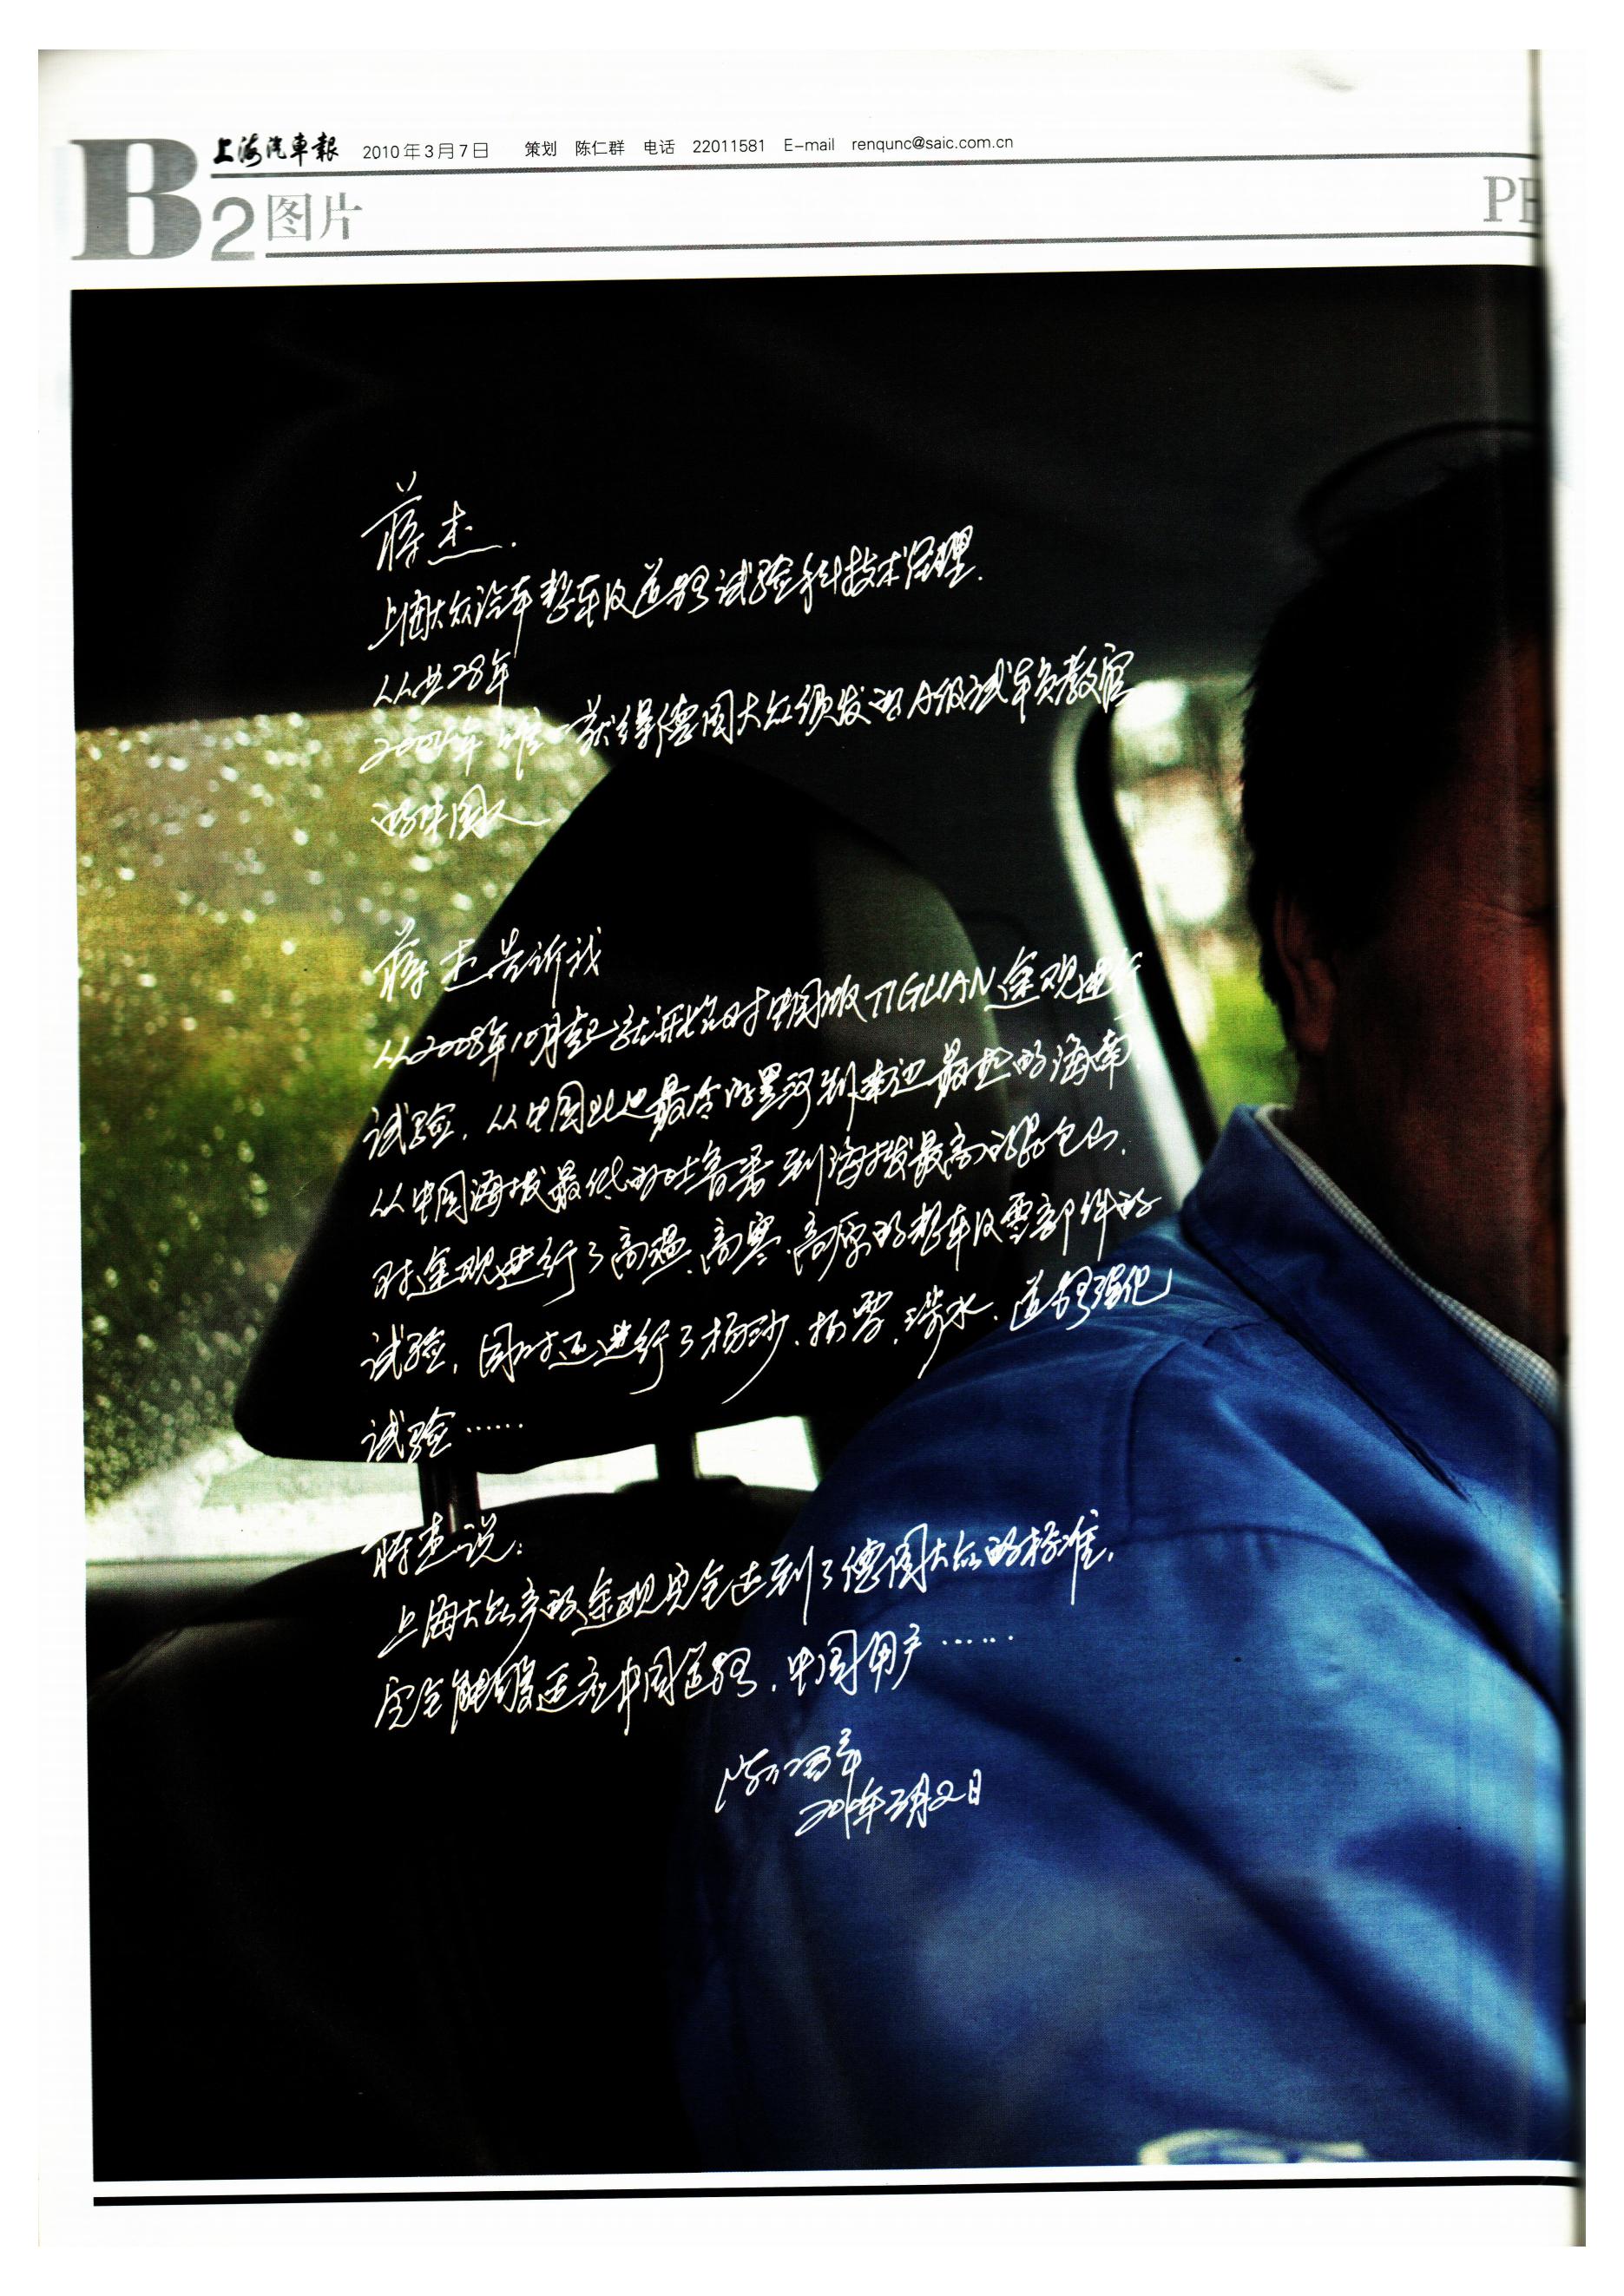 B2
上海汽車報 2010年3月7日 策划 陈仁群 电话 22011581 E-mail renqunc@saic.com.cn
图片
PE
蒋杰.
上海大众汽车整车及道路试验科技术经理.
从业28年
2004年唯一获得德国大众颁发的A级试车员教官
的中国人
蒋杰告诉我
从2008年10月起就开始对中国版TIGUAN途观进行
试验, 从中国北边最冷的黑河到南边最热的海南.
从中国海拔最低的吐鲁番到海拔最高的昆仑山.
对途观进行了高温、高寒、高原的整车及零部件的
试验, 同时还进行了扬沙、扬雪、涉水、道路强化
试验……
蒋杰说:
上海大众产的途观完全达到了德国大众的标准,
完全能够适应中国道路, 中国用户……
陈仁群
2010年3月2日